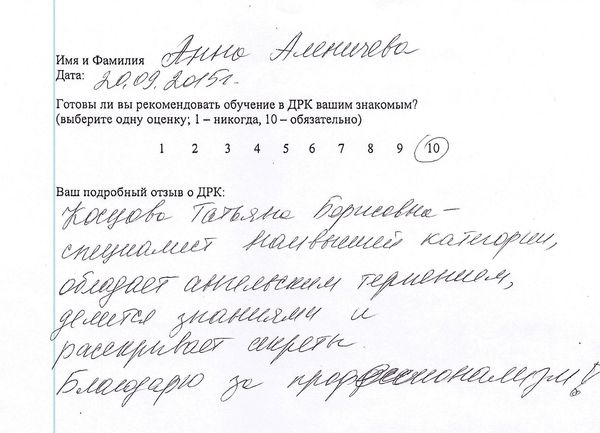 Имя и Фамилия Анна Аленичева
Дата: 20.09.2015г.
Готовы ли вы рекомендовать обучение в ДРК вашим знакомым?
(выберите одну оценку; 1 – никогда, 10 – обязательно)
1 2 3 4 5 6 7 8 9 10
Ваш подробный отзыв о ДРК:
Косцова Татьяна Борисовна –
специалист наивысшей категории,
обладает ангельским терпением,
делится знаниями и
раскрывает секреты.
Благодарю за профессионализм!